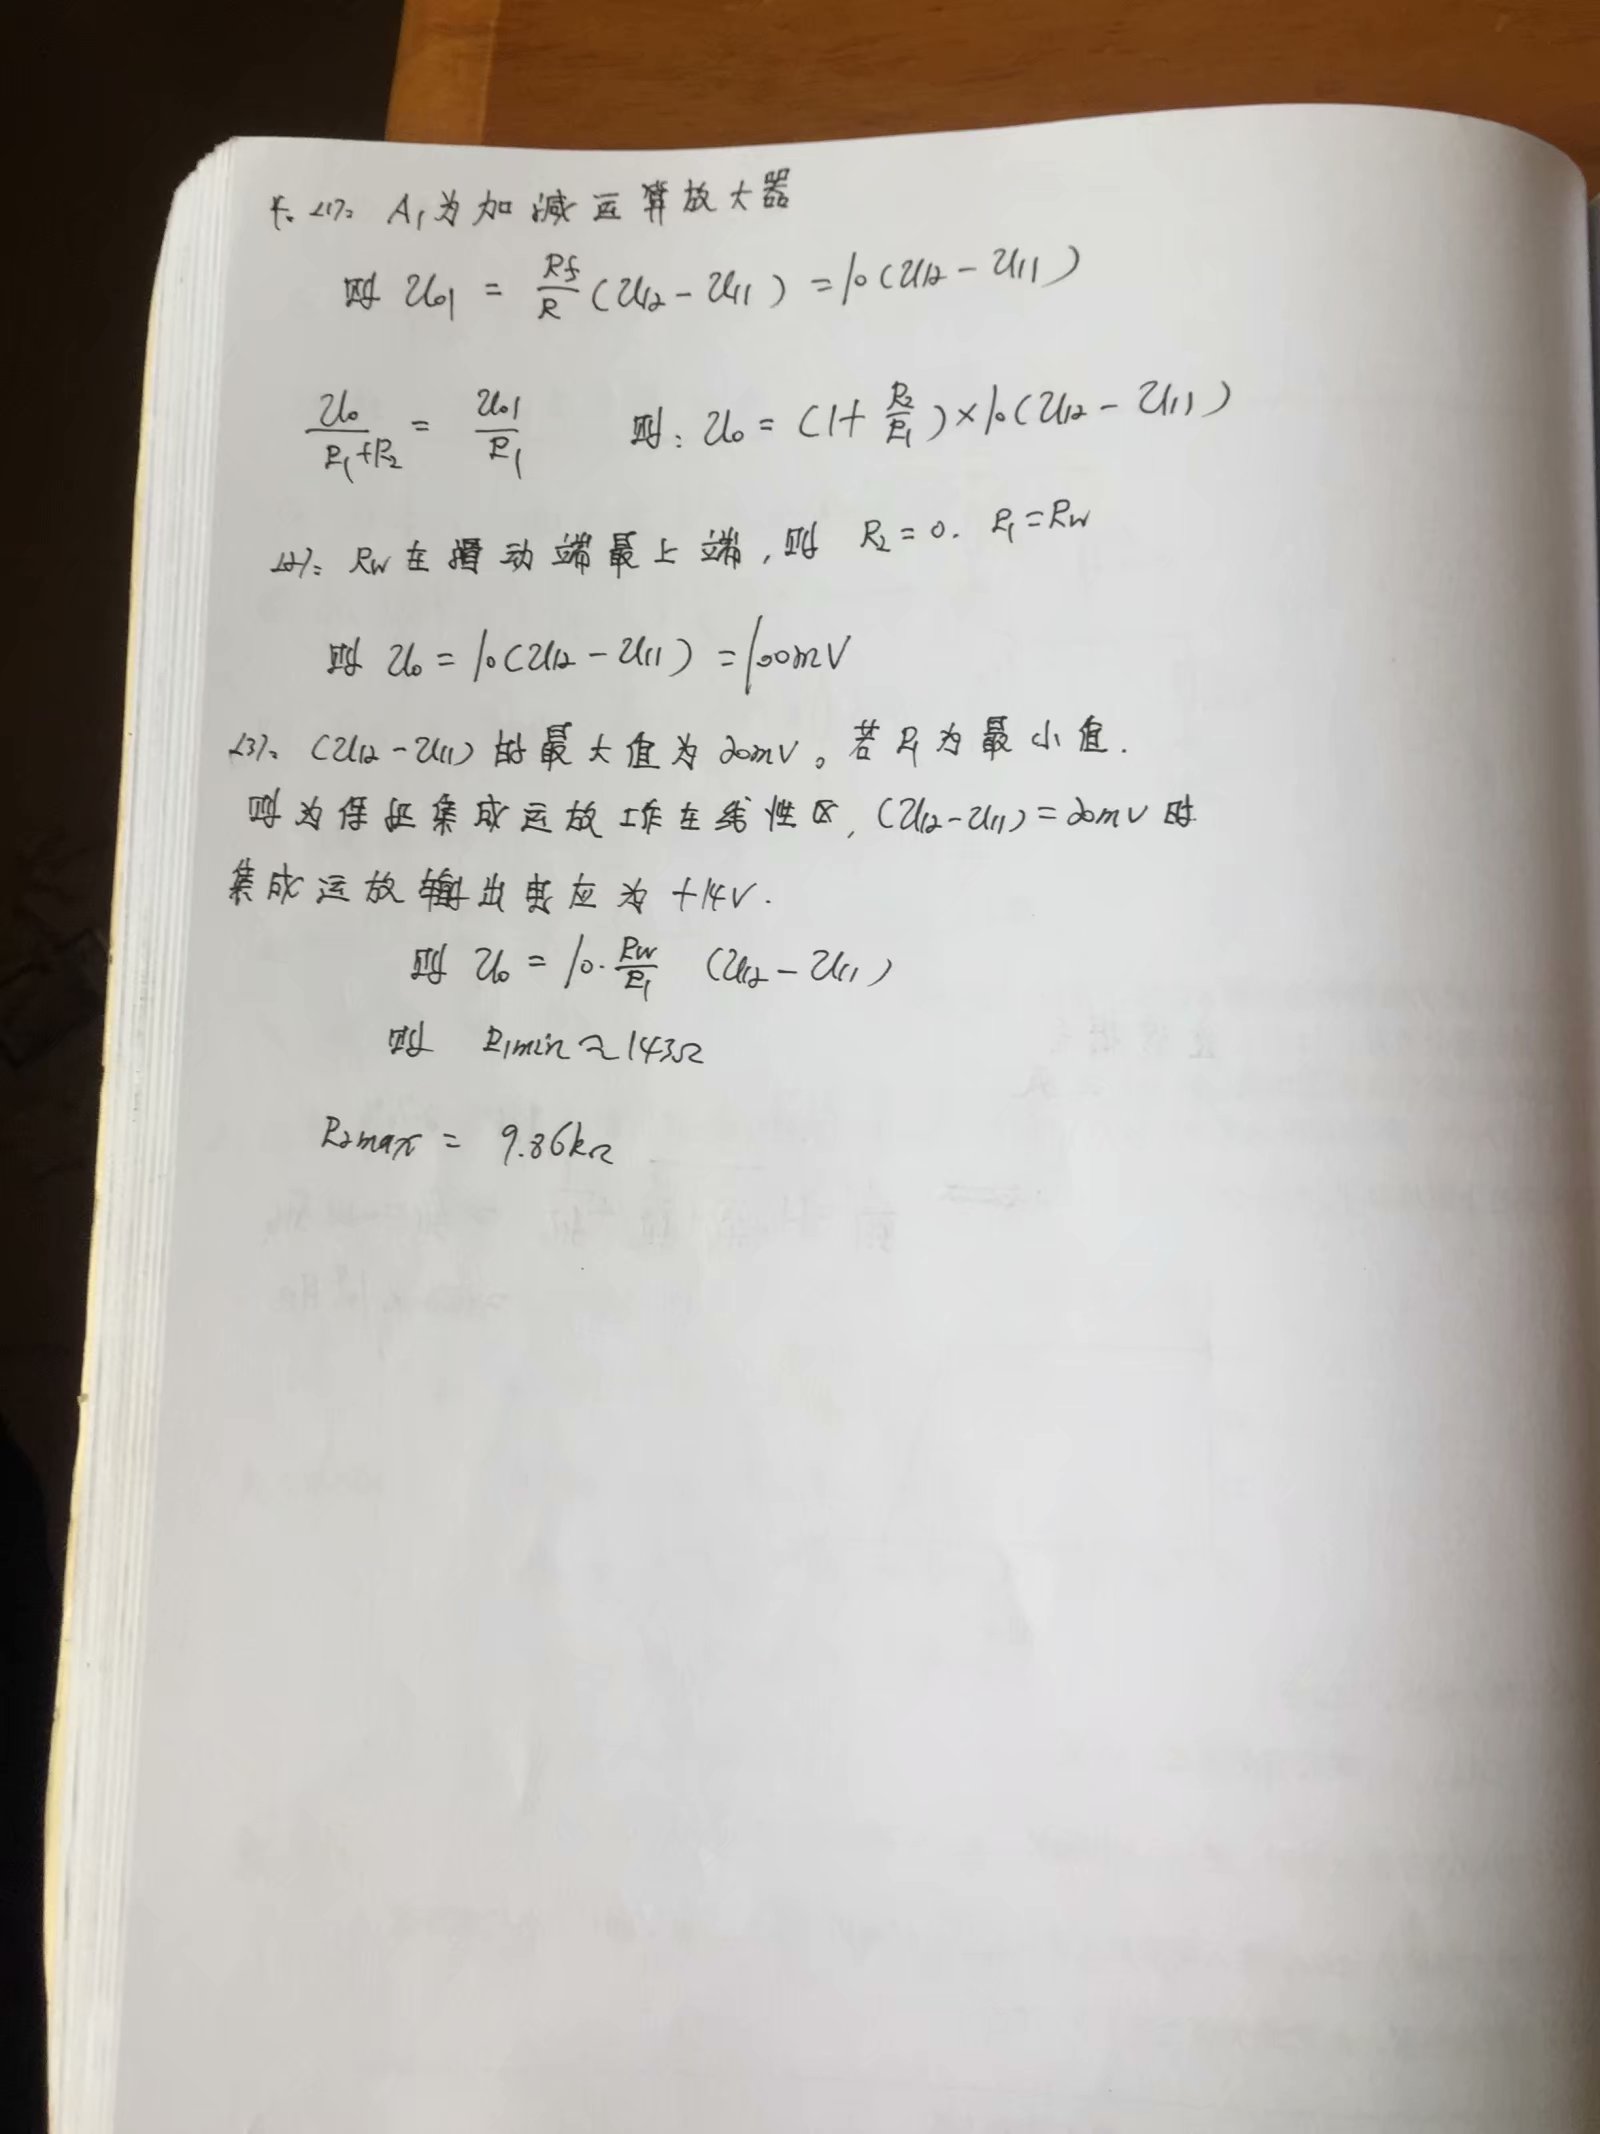 长. <1>. A₁为加减运算放大器
则 u₀₁ = Rf/R (u₁₂ - u₁₁) = 10(u₁₂ - u₁₁)
u₀/(R₁+R₂) = u₀₁/R₁ 则: u₀ = (1+R₂/R₁)×10(u₁₂ - u₁₁)
<2>: Rw在滑动端最上端,则 R₂=0. R₁=Rw
则 u₀ = 10(u₁₂ - u₁₁) = 100mV
<3>. (u₁₂ - u₁₁)的最大值为20mV。若R₁为最小值.
则为保证集成运放工作在线性区, (u₁₂-u₁₁)=20mV时
集成运放输出电应为+14V.
则 u₀ = 10·Rw/R₁ (u₁₂ - u₁₁)
则 R₁min≈143Ω
R₂max = 9.86kΩ